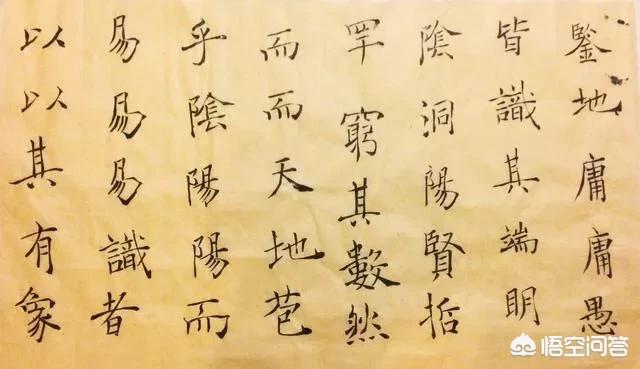 鑒地庸庸愚
皆識其端明
陰洞陽賢哲
罕窮其數然
而而天地苞
乎陰陽陽而
易易易識者
以以其有象
悟空问答